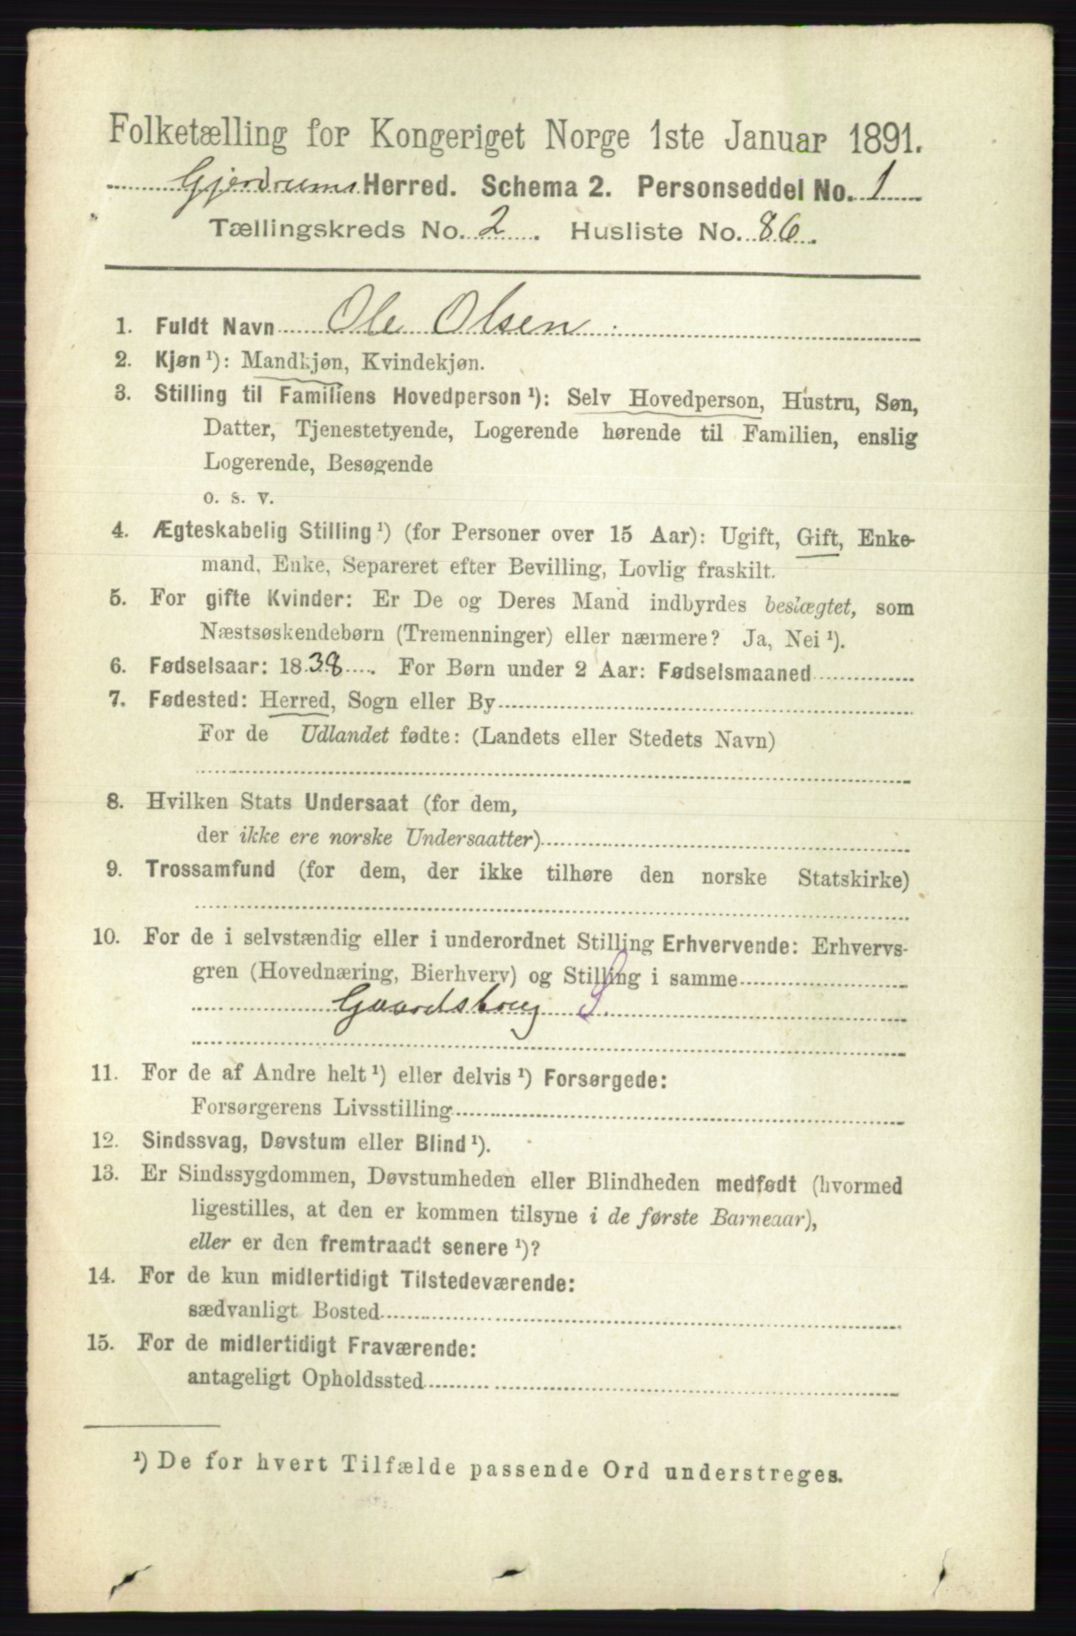 Folketælling for Kongeriget Norge 1ste Januar 1891.
Gjerdrums Herred. Schema 2. Personseddel No. 1
Tællingskreds No. 2. Husliste No. 86.
1. Fuldt Navn Ole Olsen
2. Kjøn ¹): Mandkjøn, Kvindekjøn.
3. Stilling til Familiens Hovedperson ¹): Selv Hovedperson, Hustru, Søn,
Datter, Tjenestetyende, Logerende hørende til Familien, enslig
Logerende, Besøgende
o. s. v.
4. Ægteskabelig Stilling ¹) (for Personer over 15 Aar): Ugift, Gift, Enke-
mand, Enke, Separeret efter Bevilling, Lovlig fraskilt.
5. For gifte Kvinder: Er De og Deres Mand indbyrdes beslægtet, som
Næstsøskendebørn (Tremenninger) eller nærmere? Ja, Nei ¹).
6. Fødselsaar: 1838. For Børn under 2 Aar: Fødselsmaaned
7. Fødested: Herred, Sogn eller By
For de Udlandet fødte: (Landets eller Stedets Navn)
8. Hvilken Stats Undersaat (for dem,
der ikke ere norske Undersaatter)
9. Trossamfund (for dem, der ikke tilhøre den norske Statskirke)
10. For de i selvstændig eller i underordnet Stilling Erhvervende: Erhvervs-
gren (Hovednæring, Bierhverv) og Stilling i samme
Gaardsbrug S.
11. For de af Andre helt ¹) eller delvis ¹) Forsørgede:
Forsørgerens Livsstilling
12. Sindssvag, Døvstum eller Blind ¹).
13. Er Sindssygdommen, Døvstumheden eller Blindheden medfødt (hvormed
ligestilles, at den er kommen tilsyne i de første Barneaar),
eller er den fremtraadt senere ¹)?
14. For de kun midlertidigt Tilstedeværende:
sædvanligt Bosted
15. For de midlertidigt Fraværende:
antageligt Opholdssted
¹) De for hvert Tilfælde passende Ord understreges.